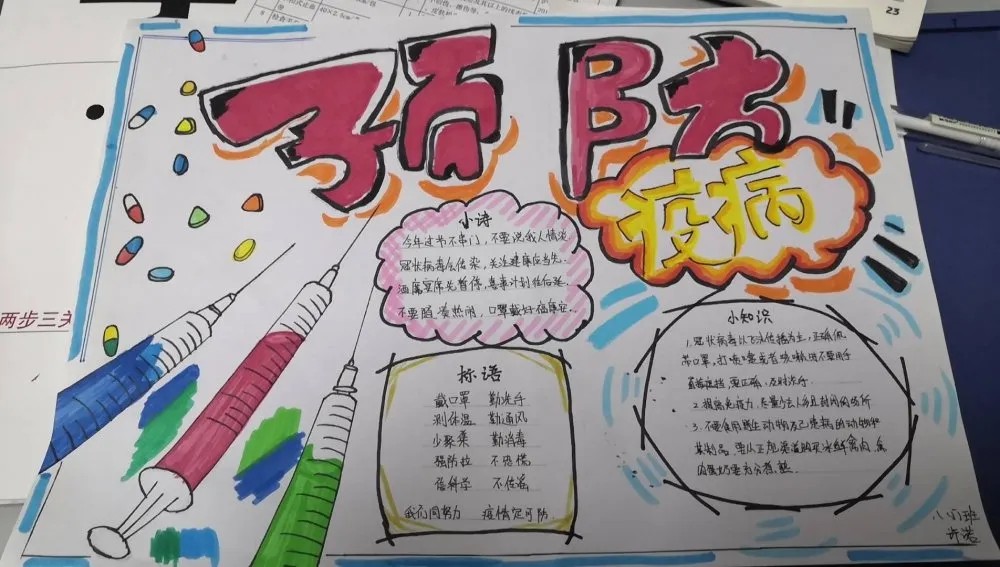 预防
疫病
小诗
今年过节不串门，不要说我人情淡
冠状病毒会传染，关注健康应当先.
酒席宴席先暂停，喜事计划往后延.
不要赔 凑热闹，口罩戴好福康安.
标语
戴口罩 勤洗手
测体温 勤通风
少聚集 勤消毒
强防控 不恐慌
信科学 不传谣
我们同努力 疫情定可防
小知识
1.冠状病毒以飞沫传播为主，正确佩
带口罩，打喷嚏或者咳嗽时不要用手
直接遮挡，要正确、及时洗手.
2.提高免疫力，尽量少去人多且封闭的场所
3.不要食用野生动物及已患病的动物和
其制品，要从正规渠道购买冰鲜禽肉，禽
肉蛋奶要充分煮熟
八(1)班
许诺
两步三
23